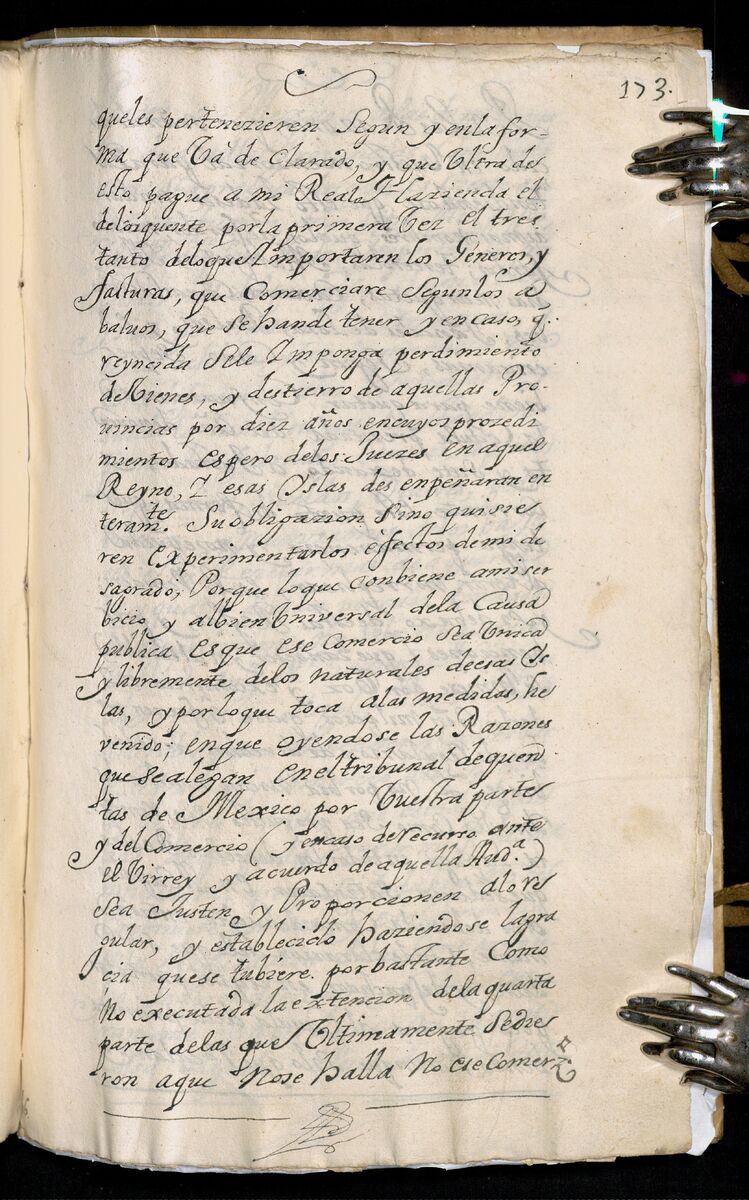 173.
queles pertenezieren Segun y enlafor-
ma que Vá de Clarado, y que Vltra de
esto pague a mi Real Hazienda el
delinquente porla primera Vez el tres
tanto deloque Importaren los Géneros, y
facturas, que Comerciare Segunlos a
baluos, que se hande tener y encaso, q.
reyncida Sele Imponga perdimiento
deVienes, y destierro de aquellas Pro-
uincias por diez años, encuyos prozedi
mientos espero delos Juezes en aquel
Reyno, I esas Yslas des enpeñaran en
teramte. Su obligazion Sino quisie
ren experimentarlos effectos demi de
sagrado; Porque loque conbiene amiser
bicio y albien Vniversal dela Causa
publica es que ese Comercio Sea Vnica
y libremente delos naturales deesas Ys
las, y porloque toca alas medidas, he
venido; enque oyendose las Razones
que se alegan enel tribunal dequen
tas de Mexico por Vuestra parte
y del Comercio (y encaso de recurso ante
el Virrey y acuerdo de aquella Auda.)
Sea Justen, y Proporcionen alo re
gular, y establecido haziendose lagra
cia quese tubiere. por bastante Como
No executada la extencion dela quarta
parte delas que Vltimamente Sedie
ron aque Nose halla No ese Comer